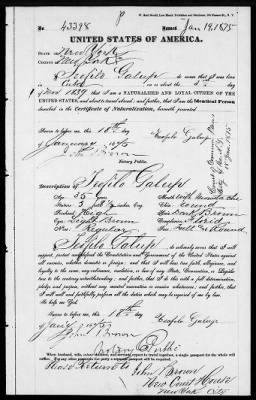 No. 43398 Issued Jan. 19, 1875
UNITED STATES OF AMERICA.
STATE OF New York
COUNTY OF New York
I, Teofilo Galup do swear that I was born
in Cuba on the
of Nov 1839; that I am a NATURALIZED AND LOYAL CITIZEN OF THE
UNITED STATES, and about to travel abroad; and further, that I am the Identical Person
described in the Certificate of Naturalization, herewith presented.
Sworn to before me, this 18th day
of January 1875
Teofilo Galup
John Brown
Notary Public.
Description of Teofilo Galup
Age, 35
Mouth, with moustache
Stature, 5 feet
Chin,
Forehead, High
Hair, Dark Brown
Eyes, Light Brown
Complexion,
Nose, Regular
Face, Full & Round
I, Teofilo Galup do solemnly swear that I will
support, protect and defend the Constitution and Government of the United States against
all enemies, whether domestic or foreign; and that I will bear true faith, allegiance, and
loyalty to the same, any ordinance, resolution, or law of any State, Convention, or Legisla-
ture to the contrary notwithstanding; and further, that I do this with a full determination,
pledge and purpose, without any mental reservation or evasion whatsoever; and further, that
I will well and faithfully perform all the duties which may be required of me by law.
So help me God.
Sworn to before me, this 18th day
of Jany 1875
Teofilo Galup
John Brown
Notary Public
Please Return to John Brown
New Court House
New York City